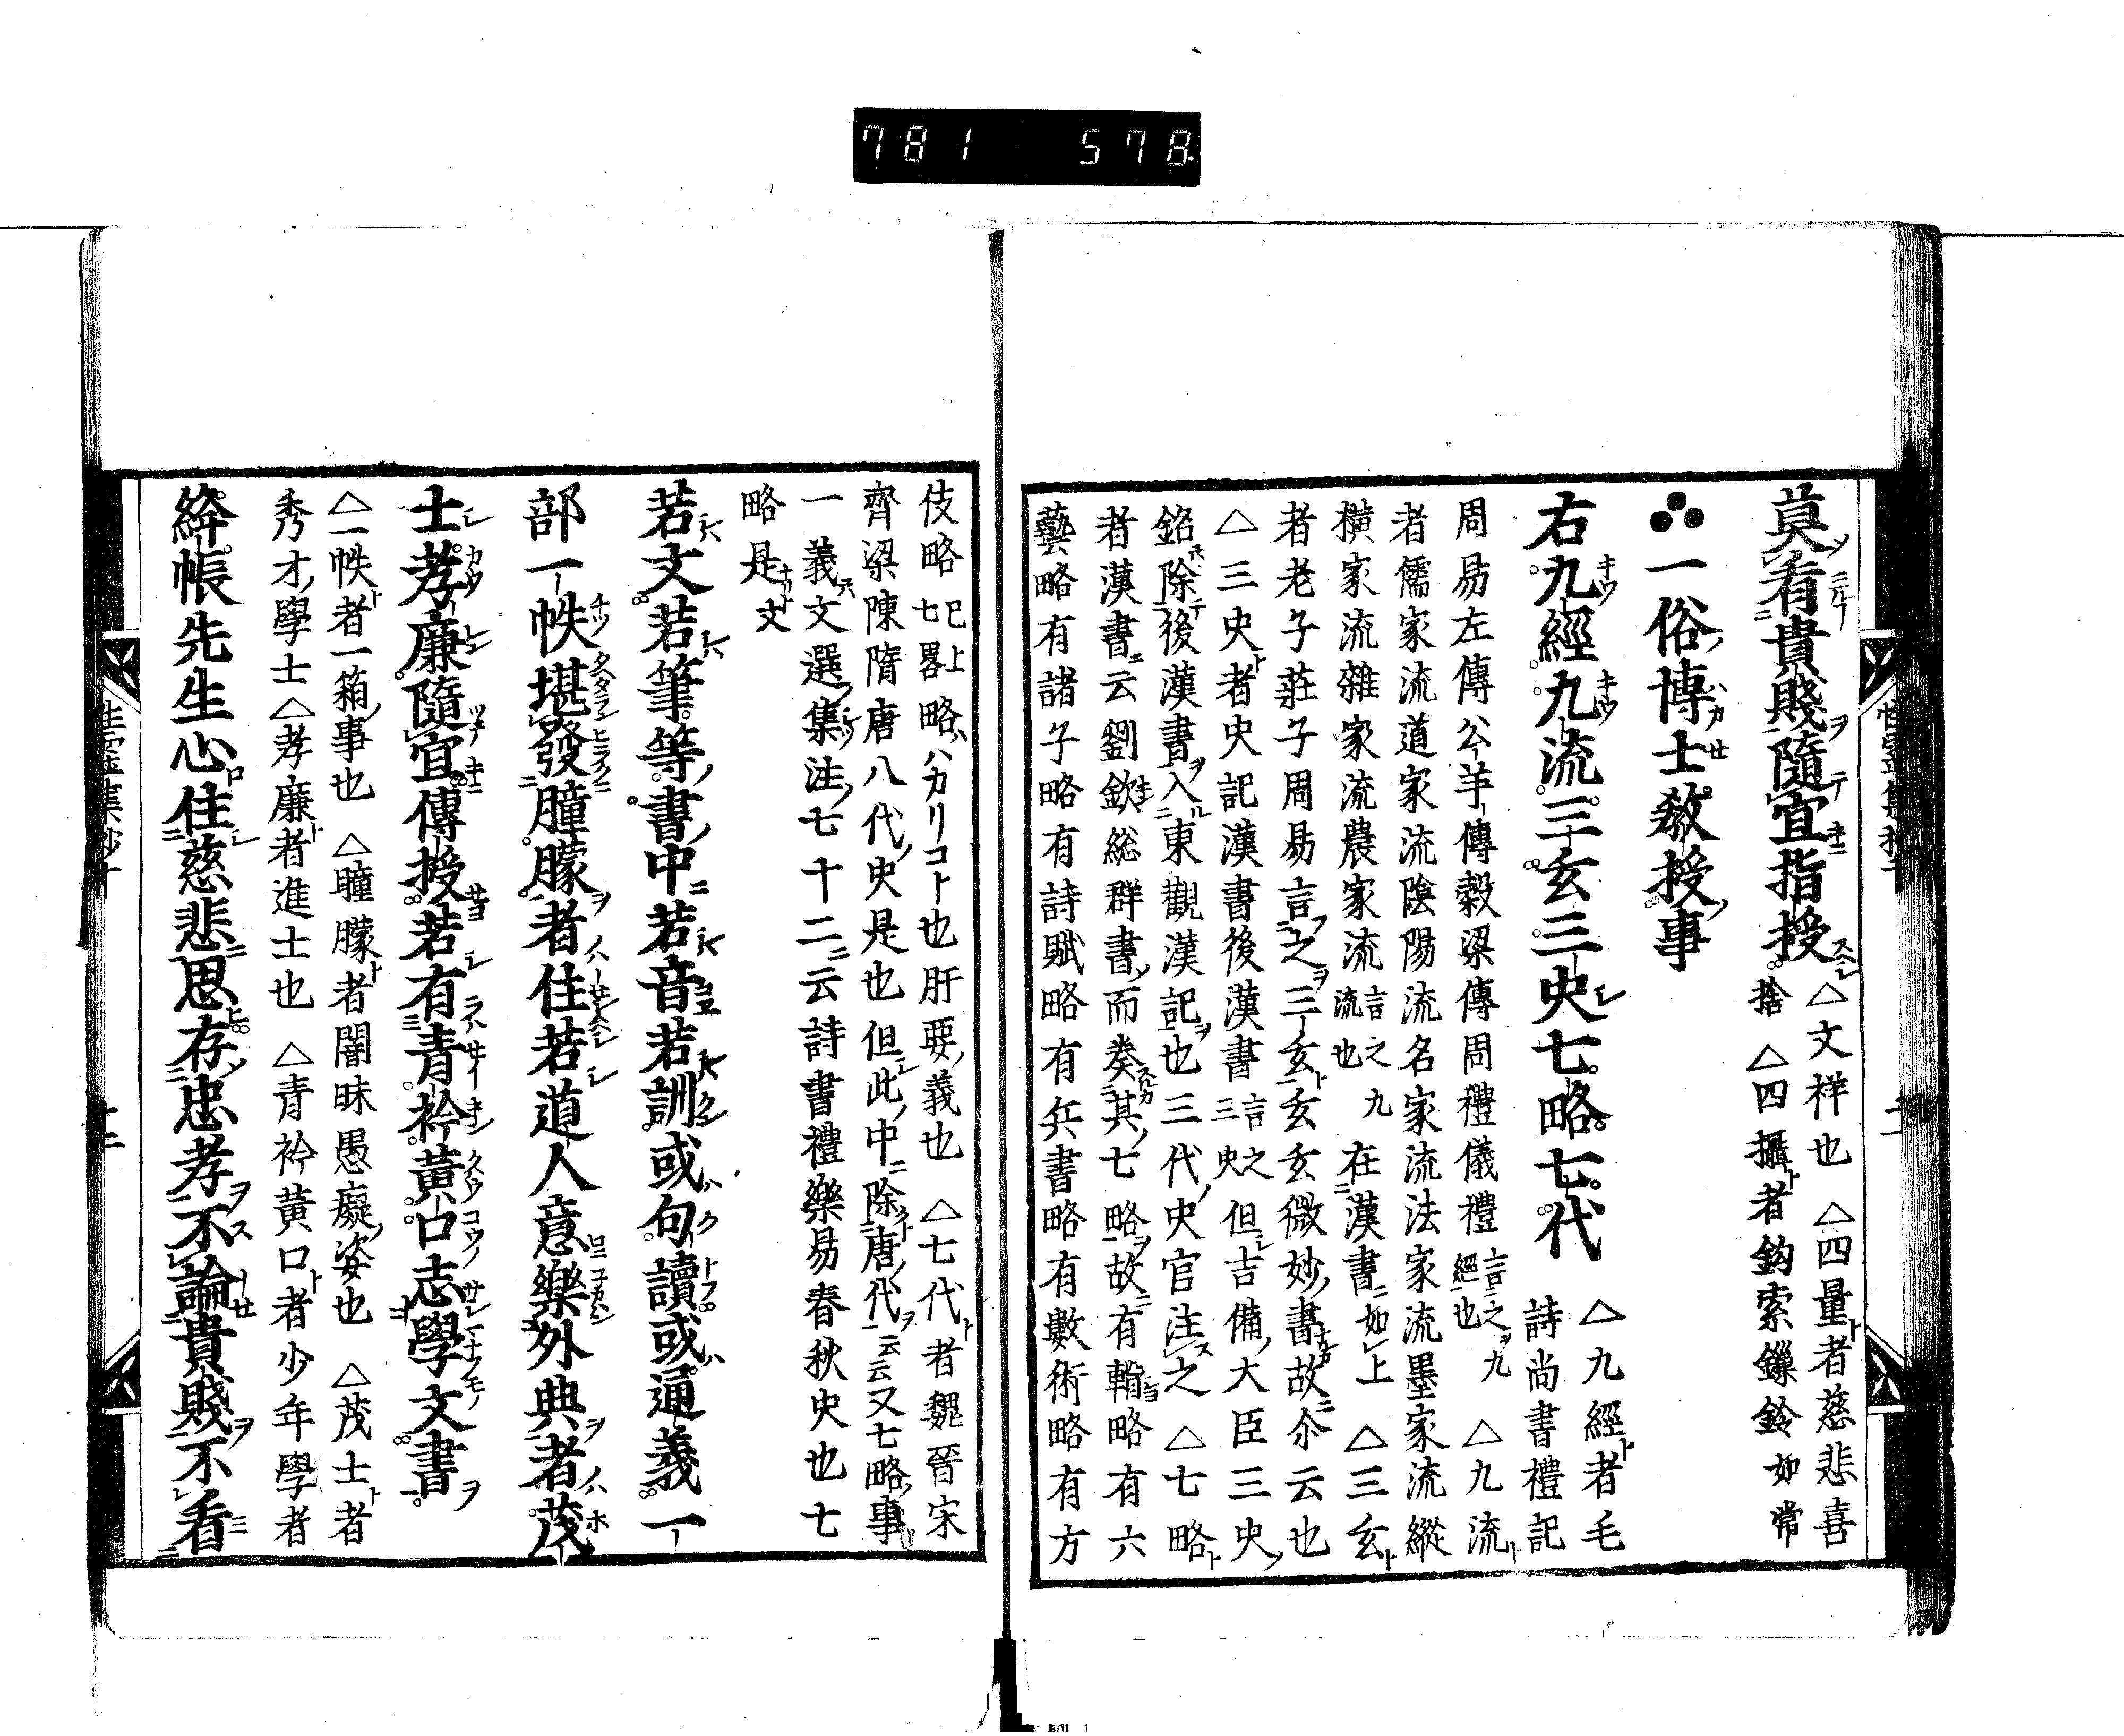 781 578
莫看貴賤隨宜指授 △文祥也 △四量者慈悲喜
捨 △四攝者鈎索鏁鈴如常
一俗博士教授事
右九經九流三玄三史七略七代 △九經者毛
詩尚書禮記
周易左傳公羊傳穀梁傳周禮儀禮 言之九經也 △九流
者儒家流道家流陰陽流名家流法家流墨家流縱
橫家流雜家流農家流 言之九流也 在漢書如上 △三玄
者老子莊子周易言之三玄玄玄微妙書故尒云也
△三史者史記漢書後漢書 言之三史 但吉備大臣三史
銘除後漢書入東觀漢記也三代史官注之 △七略
者漢書云劉欽総群書而奏其七略故有輯略有六
藝略有諸子略有詩賦略有兵書略有數術略有方
伎略 已上七畧 略ハカリコト也肝要義也 △七代者魏晉宋
齊梁陳隋唐八代史是也但此中除唐代云云又七略事
一義文選集注七十二云詩書禮樂易春秋史也七
略是文
若文若筆等書中若音若訓或句讀或通義一
部一帙堪發朣朦者住若道人意樂外典者茂
士孝廉隨宜傳授若有青衿黃口志學文書
△一帙者一箱事也 △朣朦者闇昧愚癡姿也 △茂士者
秀才學士△孝廉者進士也 △青衿黃口者少年學者
絳帳先生心住慈悲思存忠孝不論貴賤不看